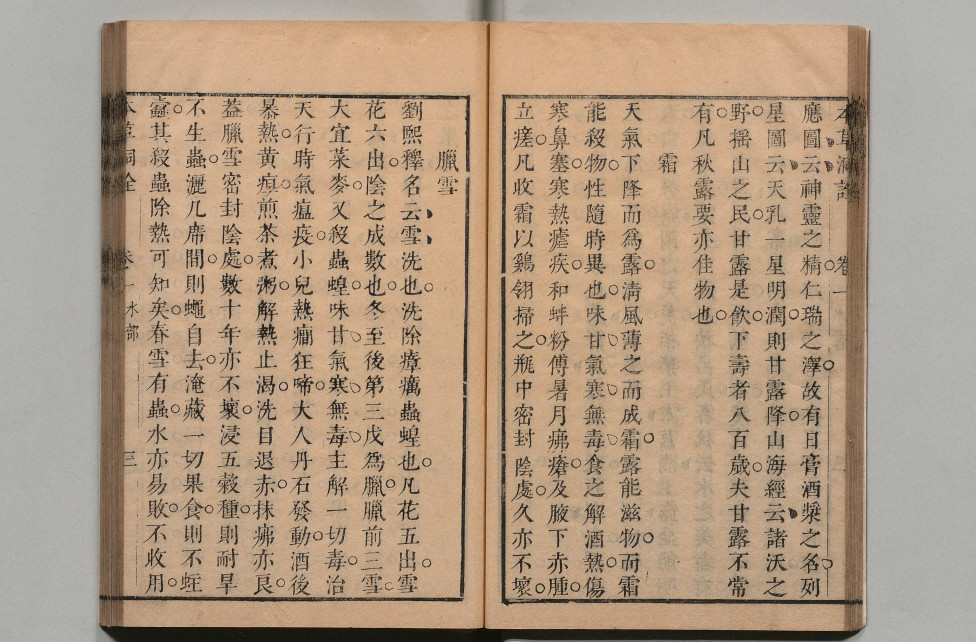 應圖云神靈之精仁瑞之澤故有日膏酒漿之名列
星圖云天乳一星明潤則甘露降山海經云諸沃之
野揺山之民甘露是飮下壽者八百歲夫甘露不常
有凡秋露要亦佳物也
霜
天氣下降而爲露淸風薄之而成霜露能滋物而霜
能殺物性隨時異也味甘氣寒無毒食之解酒熱傷
寒鼻塞寒熱瘧疾和蚌粉傅暑月疿瘡及腋下赤腫
立瘥凡收霜以鷄翎掃之瓶中密封陰處久亦不壞
臘雪
劉熙釋名云雪洗也洗除瘴癘蟲蝗也凡花五出雪
花六出陰之成數也冬至後第三戊爲臘臘前三雪
大宜菜麥又殺蟲蝗味甘氣寒無毒主解一切毒治
天行時氣瘟疫小兒熱癎狂啼大人丹石發動酒後
暴熱黄疸煎茶煮粥解熱止渴洗目退赤抹疿亦良
葢臘雪密封陰處數十年亦不壞浸五穀種則耐旱
不生蟲灑几席間則蠅自去淹藏一切果食則不蛀
蠹其殺蟲除熱可知矣春雪有蟲水亦易敗不收用
卷一 水部 三